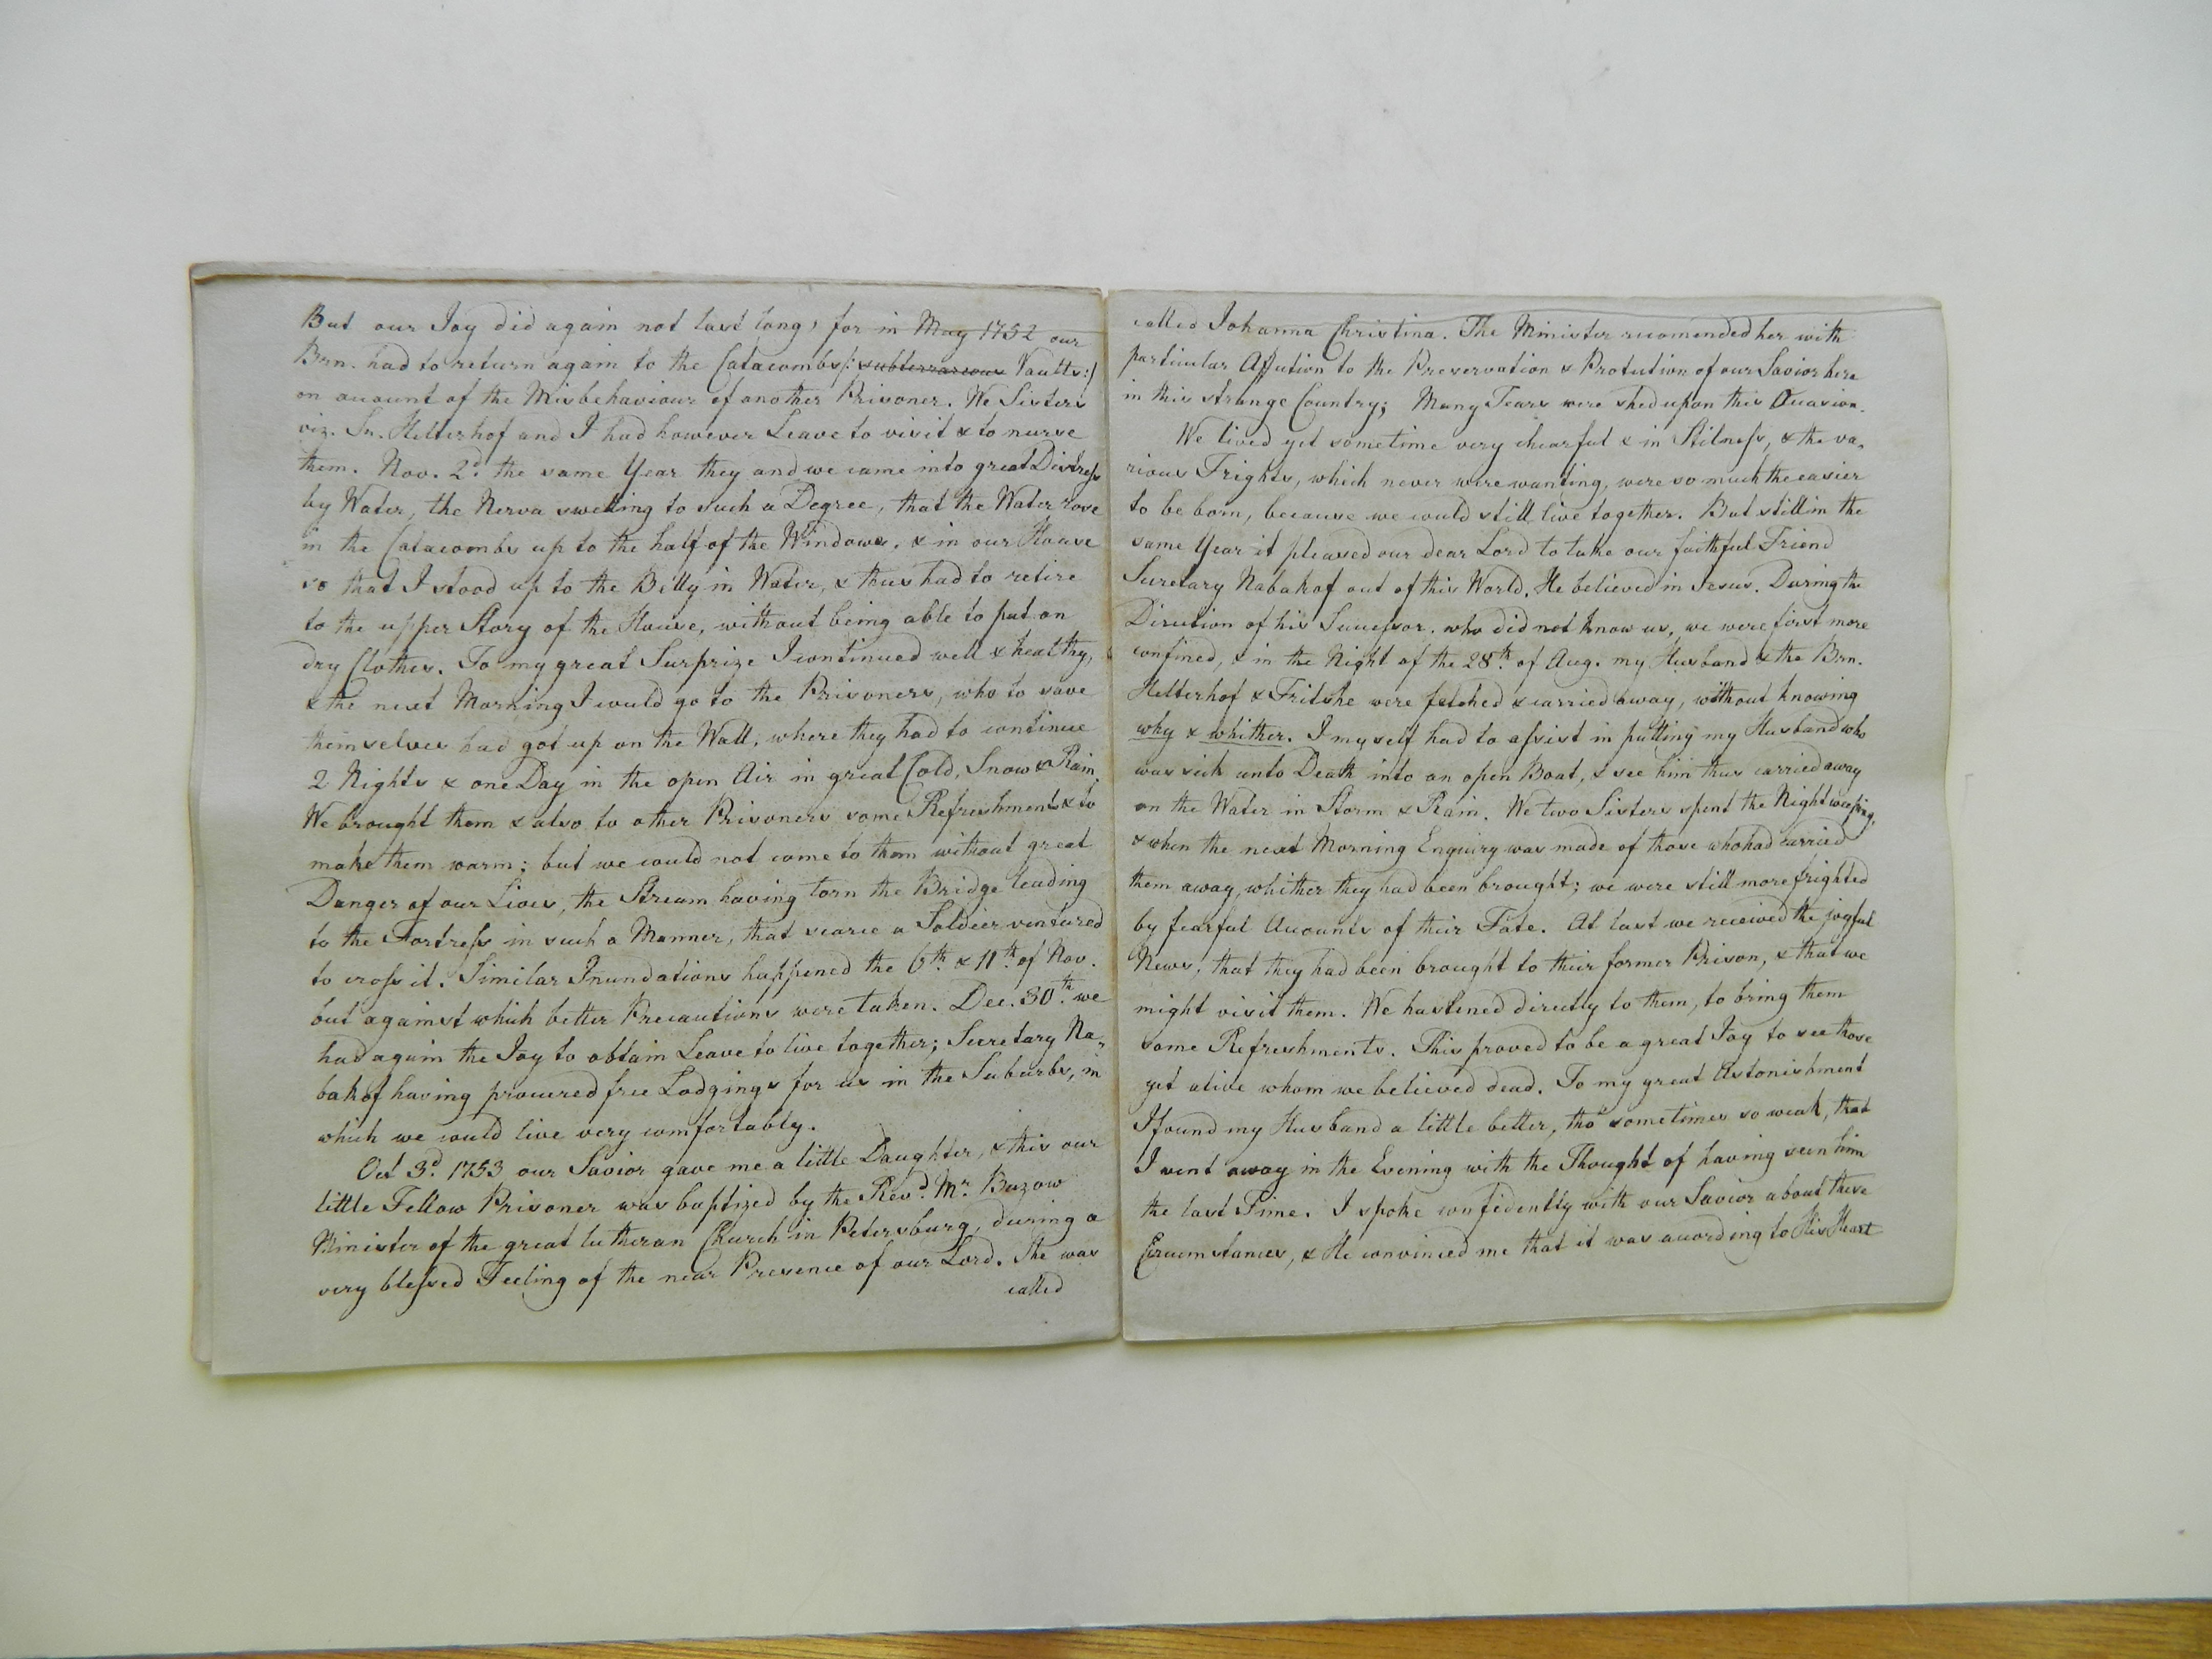 But our Joy did again not last long, for in May 1752 our
Brn. had to return again to the Catacombs /: subterrareous Vaults :/
on account of the Misbehaviour of another Prisoner. We Sisters
viz. Sr. Helterhof and I had however Leave to visit & to nurse
them. Nov. 2d. the same Year they and we came into great Distress
by Water, the Nerva swelling to such a Degree, that the Water rose
in the Catacombs up to the half of the Windows, & in our House
so that I stood up to the Belly in Water, & thus had to retire
to the upper Story of the House, without being able to put on
dry Clothes. To my great Surprize I continued well & healthy,
& the next Morning I could go to the Prisoners, who to save
themselves had got up on the Wall, where they had to continue
2 Nights & one Day in the open Air in great Cold, Snow & Rain.
We brought them & also to other Prisoners some Refreshments & to
make them warm; but we could not come to them without great
Danger of our Lives, the Stream having torn the Bridge leading
to the Fortress in such a Manner, that scarce a Soldier ventured
to cross it. Similar Inundations happened the 6th. & 11th. of Nov.
but against which better Precautions were taken. Dec. 30th. we
had again the Joy to obtain Leave to live together; Secretary Na-
bakof having procured free Lodgings for us in the Suburbs, in
which we could live very comfortably.
Oct 3d. 1753 our Savior gave me a little Daughter, & this our
little Fellow Prisoner was baptized by the Revd. Mr. Buzow
Minister of the great lutheran Church in Petersburg, during a
very blessed Feeling of the near Presence of our Lord. She was
called
called Johanna Christina. The Minister recomended her with
particular Affection to the Preservation & Protection of our Savior here
in this strange Country; Many Tears were shed upon this Occasion.
We lived yet sometime very chearful & in Stilness, & the va-
rious Frights, which never were wanting, were so much the easier
to be born, because we could still live together. But still in the
same Year it pleased our dear Lord to take our faithful Friend
Secretary Nabakof out of this World. He believed in Jesus. During the
Direction of his Successor, who did not know us, we were first more
confined, & in the Night of the 28th. of Aug. my Husband & the Brn.
Helterhof & Fritshe were fetched & carried away, without knowing
why & whither. I myself had to assist in putting my Husband who
was sick unto Death into an open Boat, & see him thus carried away
on the Water in Storm & Rain. We two Sisters spent the Night weeping,
& when the next Morning Enquiry was made of those who had carried
them away, whither they had been brought; we were still more frighted
by fearful Accounts of their Fate. At last we received the joyful
News, that they had been brought to their former Prison, & that we
might visit them. We hastened directly to them, to bring them
some Refreshments. This proved to be a great Joy to see those
yet alive whom we believed dead. To my great Astonishment
I found my Husband a little better, tho' sometimes so weak, that
I went away in the Evening with the Thought of having seen him
the last Time. I spoke confidently with our Savior about these
Circumstances, & He convinced me that it was according to His Heart